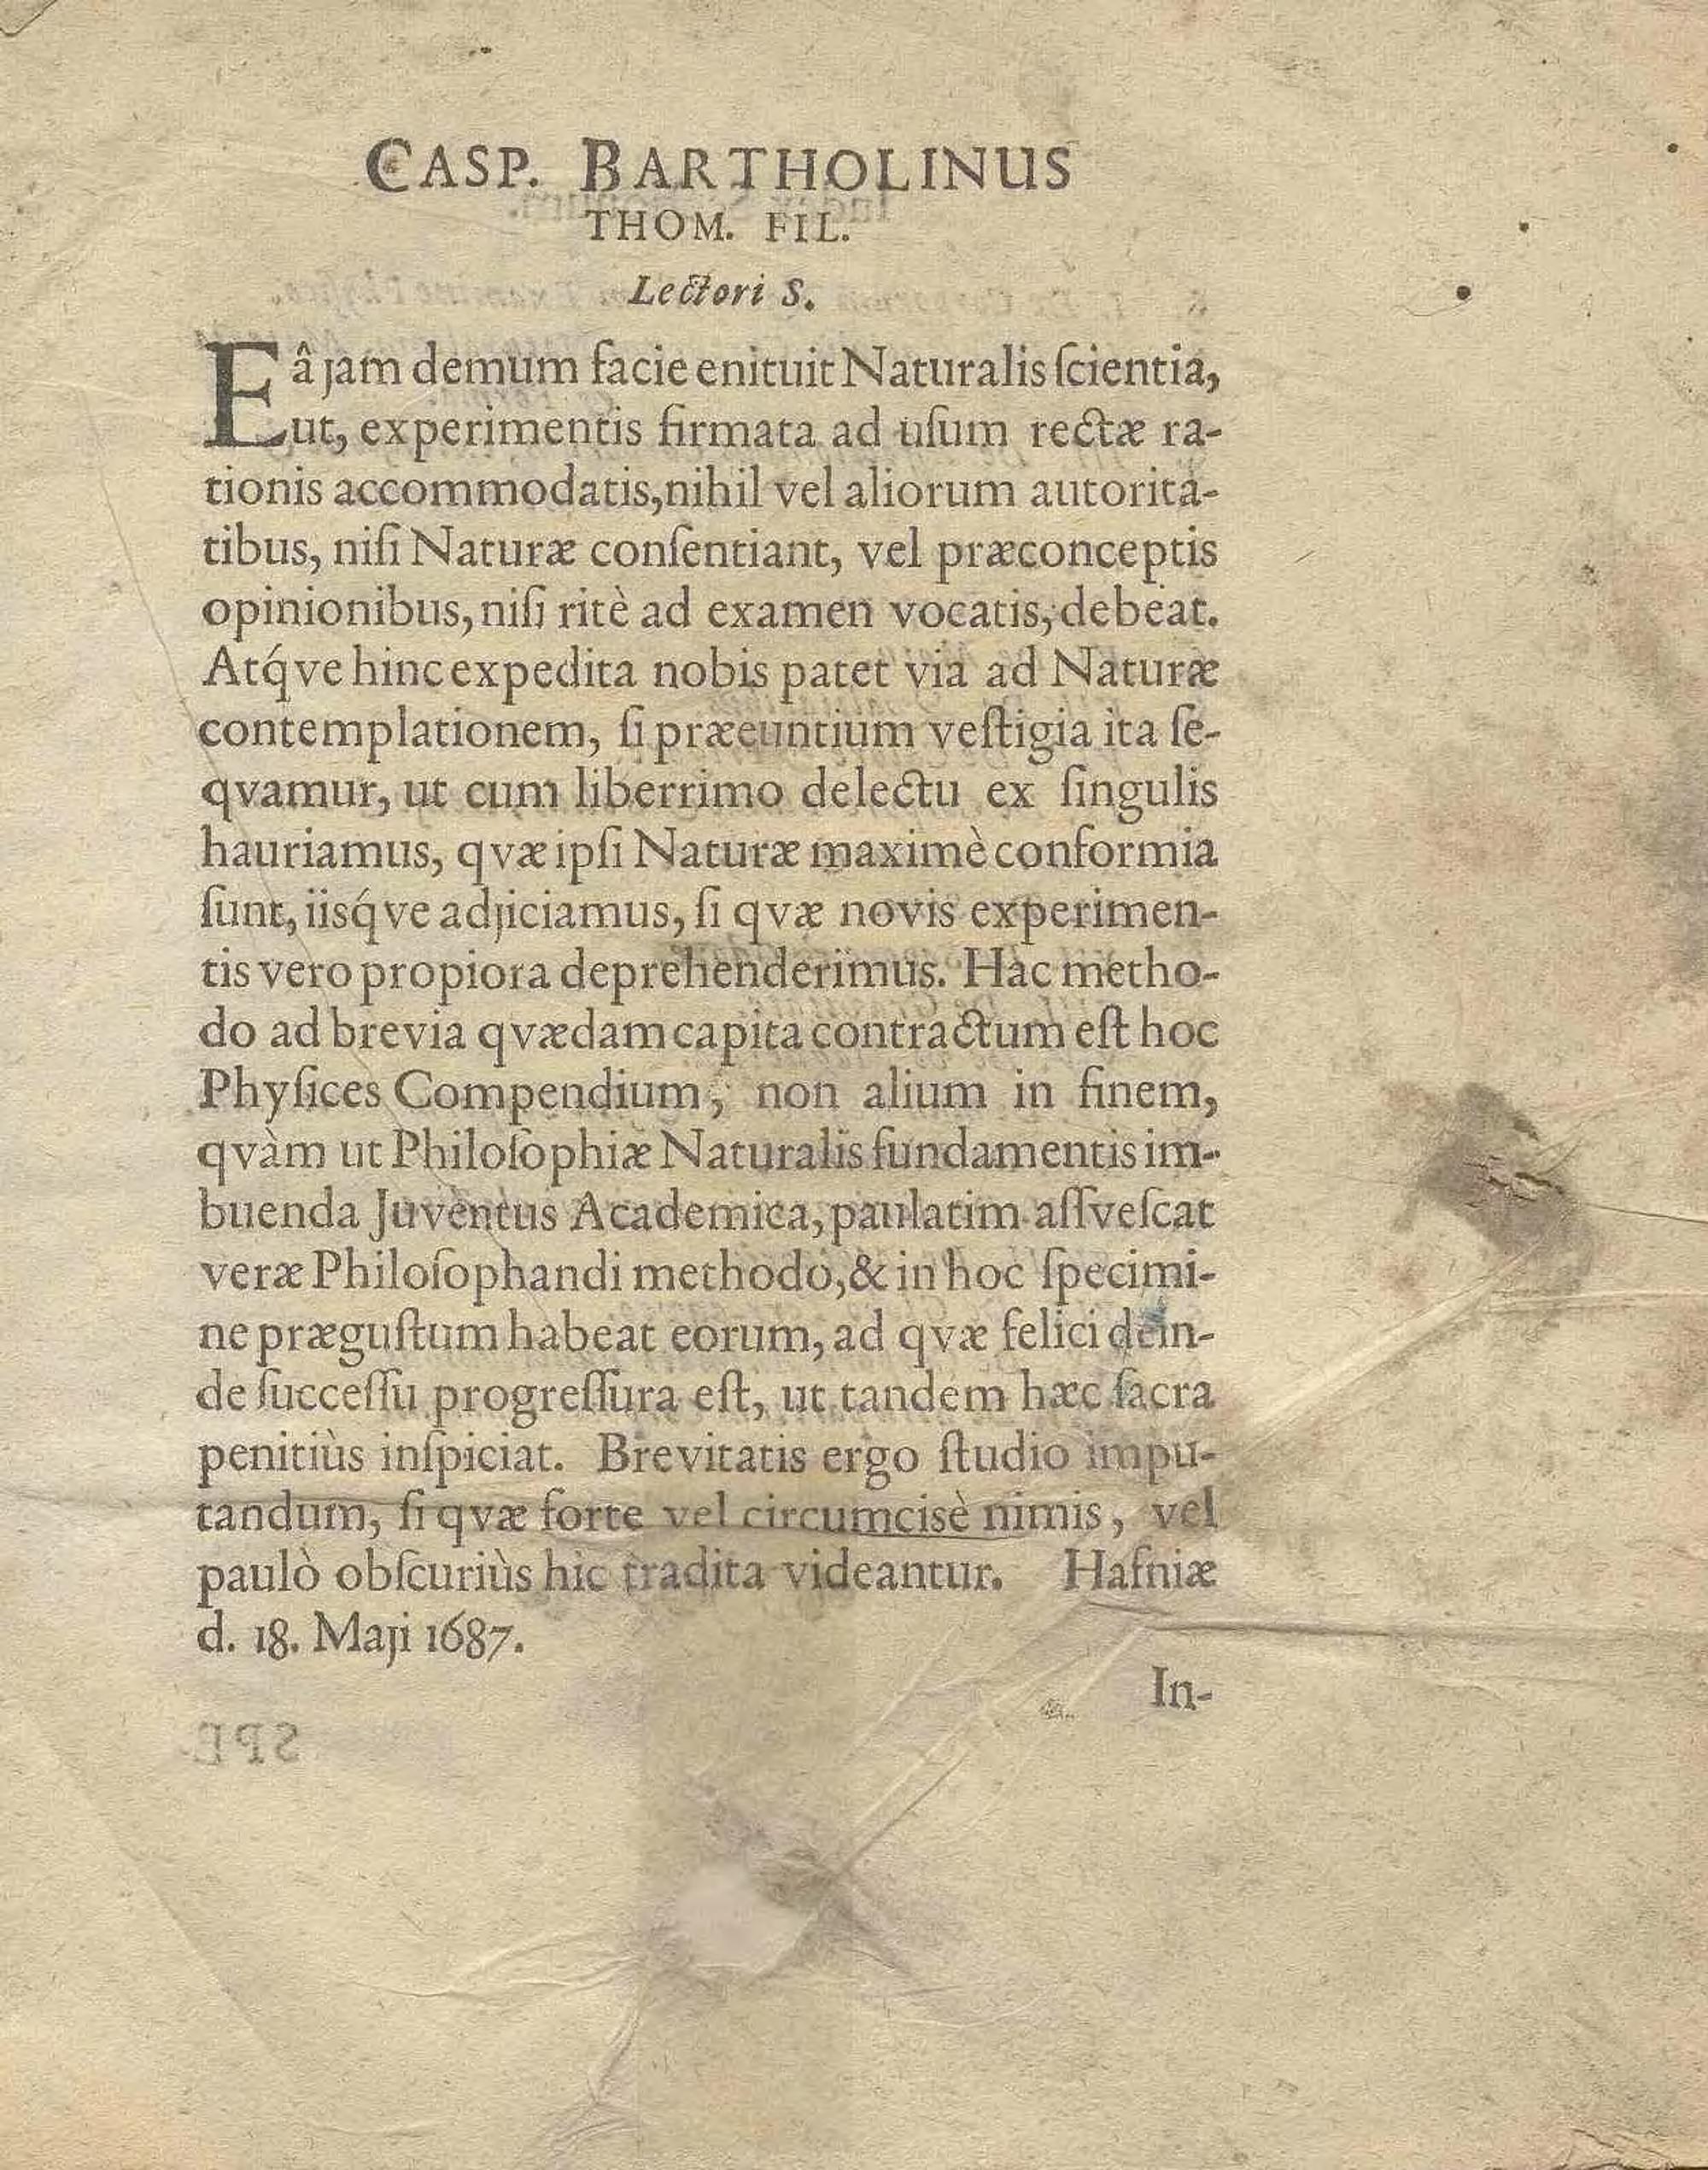 CASP. BARTHOLINUS
THOM. FIL.
Lectori S.
Eâ jam demum facie enituit Naturalis ſcientia,
ut, experimentis firmata ad uſum rectæ ra-
tionis accommodatis, nihil vel aliorum autorita-
tibus, niſi Naturæ conſentiant, vel præconceptis
opinionibus, niſi ritè ad examen vocatis, debeat.
Atq́ve hinc expedita nobis patet via ad Naturæ
contemplationem, ſi præeuntium veſtigia ita ſe-
qvamur, ut cum liberrimo delectu ex ſingulis
hauriamus, qvæ ipſi Naturæ maximè conformia
ſunt, iisq́ve adjiciamus, ſi qvæ novis experimen-
tis vero propiora deprehenderimus. Hac metho-
do ad brevia qvædam capita contractum eſt hoc
Phyſices Compendium, non alium in finem,
qvàm ut Philoſophiæ Naturalis fundamentis im-
buenda Juventus Academica, paulatim aſſveſcat
veræ Philoſophandi methodo, & in hoc ſpecimi-
ne præguſtum habeat eorum, ad qvæ felici dein-
de ſucceſſu progreſſura eſt, ut tandem hæc ſacra
penitiùs inſpiciat. Brevitatis ergo ſtudio impu-
tandum, ſi qvæ forte vel circumcisè nimis, vel
paulò obſcuriùs hic tradita videantur. Hafniæ
d. 18. Maji 1687.
In-